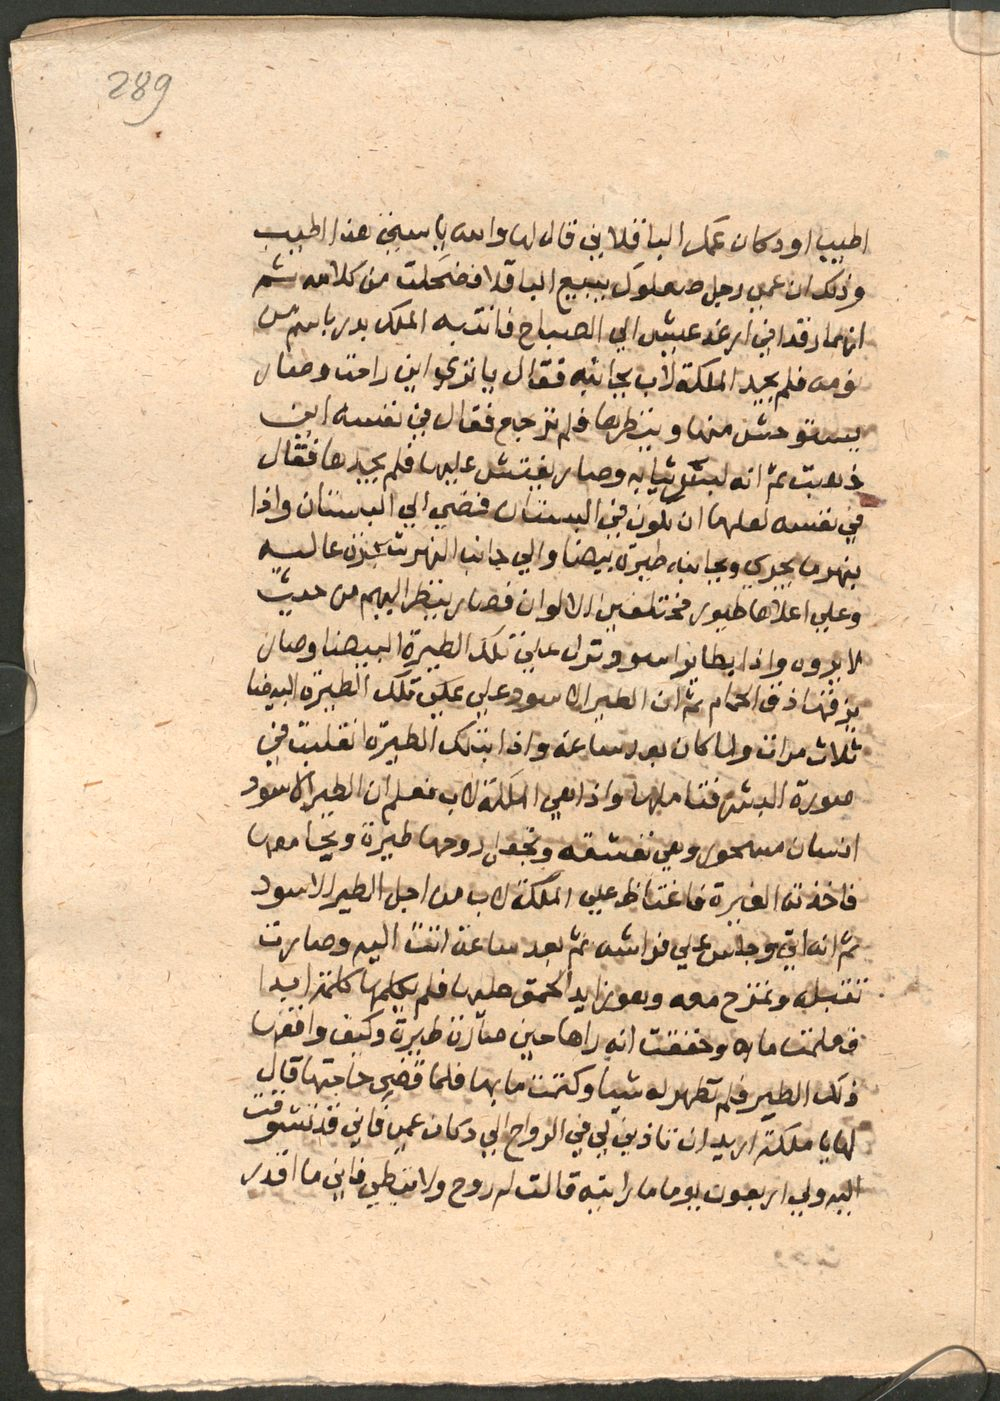 289
اطيب او دكان عمك الباقلاني قال لها والله يا ستي هذا اطيب
وذلك ان عمي رجل صعلوك يبيع الباقلا فضحكت من كلامه ثم
انهما رقدا في ارغد عيش الي الصباح فانتبه الملك بدر باسم من
نومه فلم يجد الملكة لاب بجانبه فقال يا تري اين راحت وصار
يستوحش منها وينتظرها فلم ترجع فقال في نفسه اين
ذهبت ثم انه لبس ثيابه وصار يفتش عليها فلم يجدها فقال
في نفسه لعلها ان تكون في البستان فمضي الي البستان واذا
بنهر ما يجري وبجانبه طيرة بيضا والي جانب النهر شجرة عاليه
وعلي اعلاها طيور مختلفين الالوان فصار ينظر اليهم من حيث
لا يروه واذا بطاير اسود نزل علي تلك الطيرة البيضا وصار
يزقها زق الحمام ثم ان الطير الاسود علي علي تلك الطيرة البيضا
ثلاث مرات ولما كان بعد ساعة واذا بتلك الطيرة انقلبت في
صورة البشر فتاملها واذا هي الملكة لاب فعلم ان الطير الاسود
انسان مسحور وهي تعشقه وتجعل روحها طيرة ويجامعها
فاخذته الغيرة فاغتاظ علي الملكة لاب من اجل الطير الاسود
ثم انه اتي وجلس علي فراشه ثم بعد ساعة اتت اليه وصارت
تقبله وتمزح معه وهو زايد الحمق عليها فلم يكلمها كلمة ابدا
فعلمت ما به وحققت انه راها حين صارت طيرة وكيف واقعها
ذلك الطير فلم تظهر له شيا وكتمت ما بها فلما قضي حاجتها قال
لها يا ملكة اريد ان تاذني لي في الرواح الي دكان عمي فاني قد تشوقت
اليه ولي اربعون يوما ما رايته قالت له روح ولا تبطي فاني ما اقدر